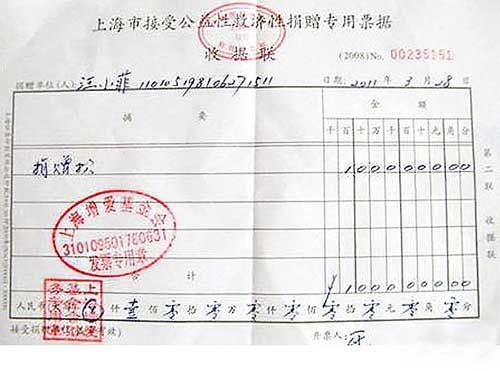 上海市接受公益性救济性捐赠专用票据
收据联 (2008)No. 00235151
捐赠单位(人): 汪小菲 110105198106271511 日期: 2011年 3月28日
摘要 金额
千百十万千百十元角分
捐赠款 100000000
上海增爱基金会
310109501780631
发票专用章
合计 ¥100000000
人民币 仟壹佰零拾零万零仟零佰零拾零元零角零分
接受捐赠单位 有效) 开票人:
第二联 收据联